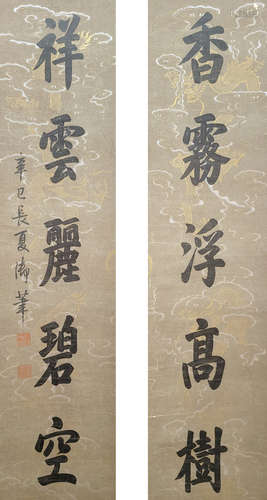 香霧浮高樹
祥雲麗碧空
辛巳長夏御筆